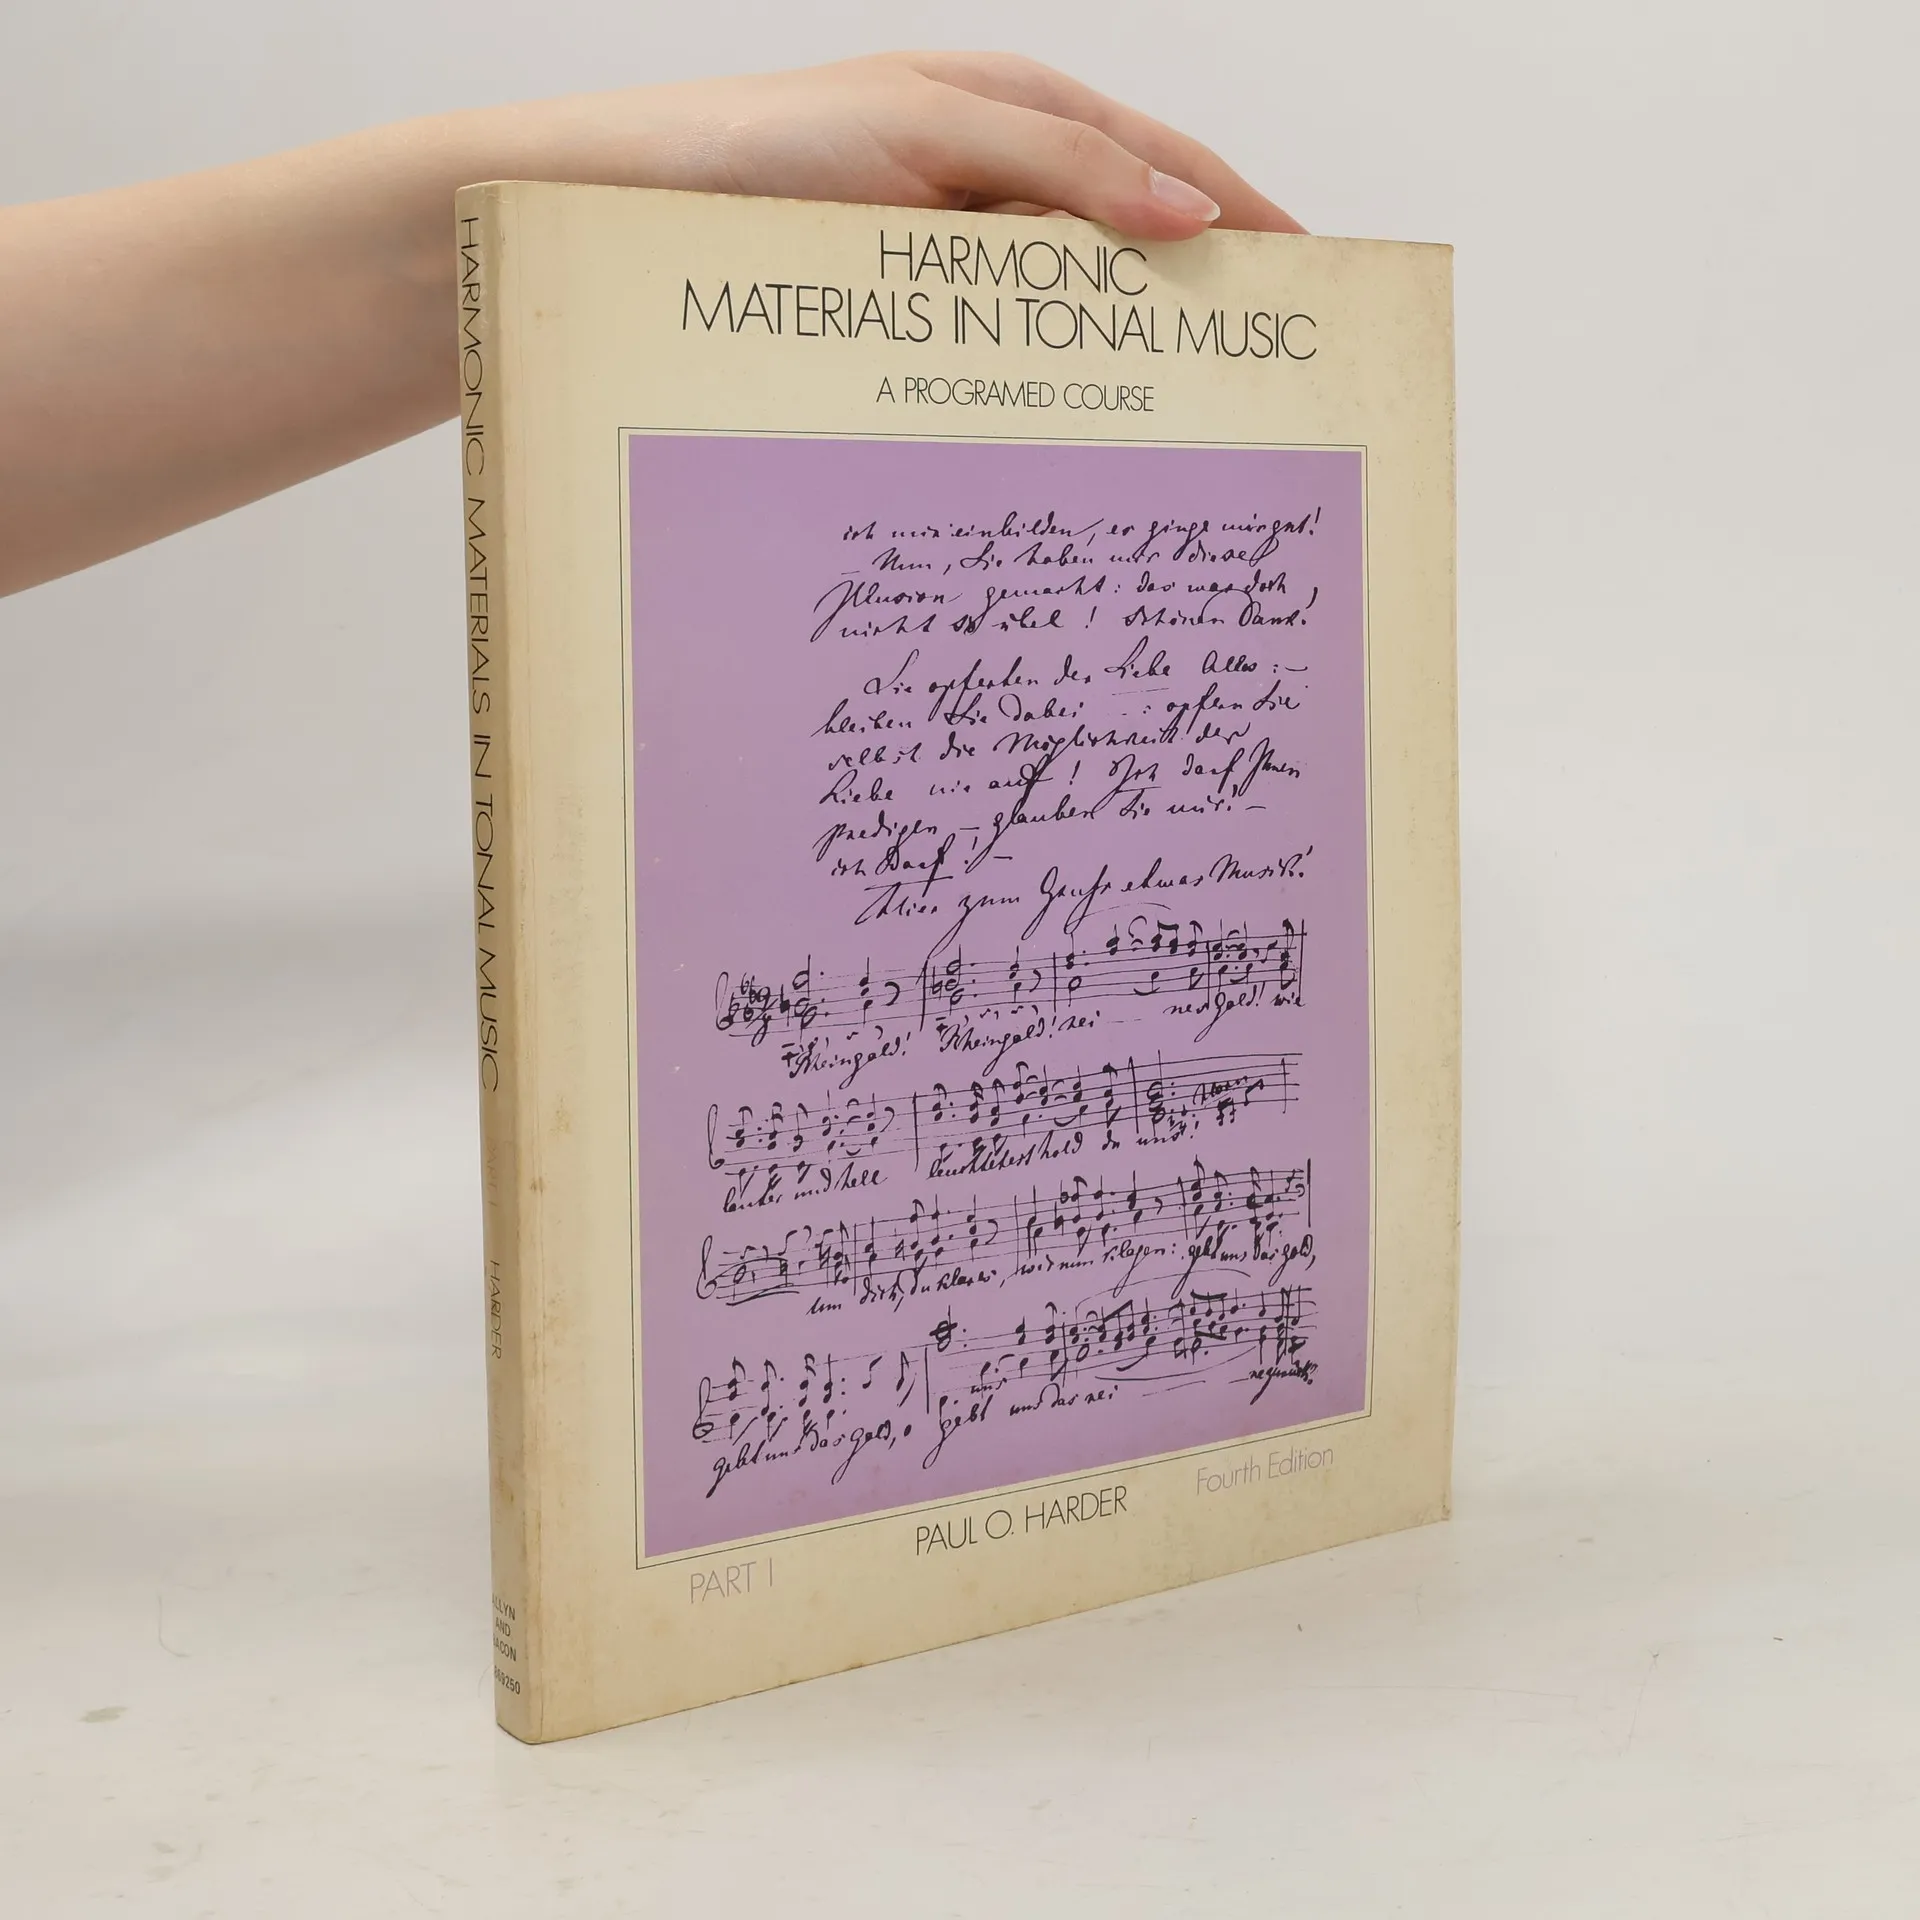 HARMONIC
MATERIALS IN TONAL MUSIC
A PROGRAMED COURSE
ich mir einbilden, es ginge
Nun, Sie haben mir diese
Illusion gemacht: das war doch
nicht so übel! Schönen Dank!
Sie opferten der Liebe Alles:—
bleiben Sie dabei : opfern Sie
selbst die Möglichkeit der
Liebe nie auf! Ich darf Ihnen
predigen — glauben Sie mir! —
ich Darf! —
Hier zum Gruß etwas Musik!
Rheingold! Rheingold! rei — nes Gold! wie
lauter und hell leuchtetest hold du uns!
um dich, du klares, wir nun klagen: gebt uns das Gold,
uns
gebt uns das Gold, o gebt uns das rei —
PAUL O. HARDER
Fourth Edition
PART I
HARMONIC MATERIALS IN TONAL MUSIC PART I HARDER
AND